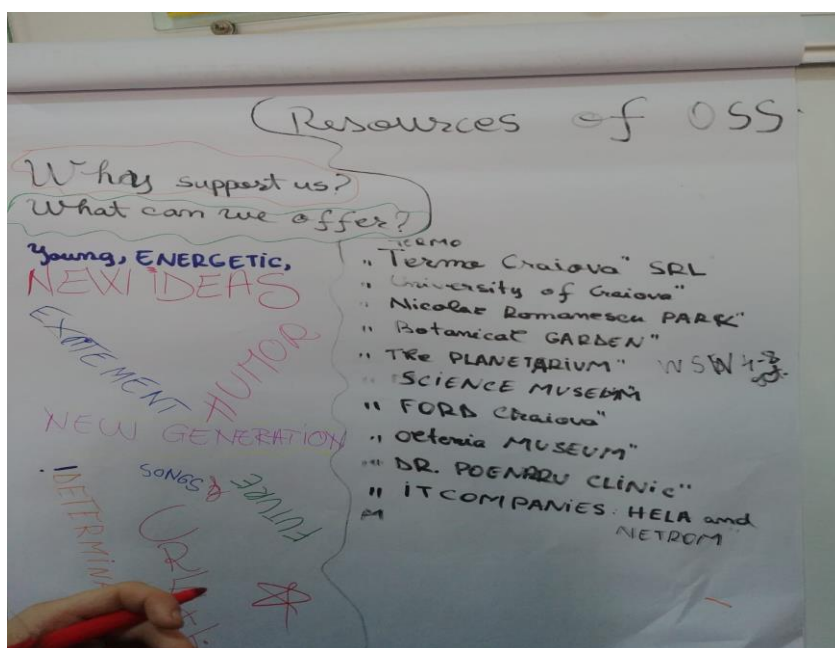 Resources of OSS
Why support us?
What can we offer?
Young, ENERGETIC,
NEW IDEAS
EXITEMENT
HUMOR
NEW GENERATION
SONGS
FUTURE
DETERMINA
TERMO
"Termo Craiova" SRL
"University of Craiova"
"Nicolae Romanescu PARK"
"Botanical GARDEN"
"THe PLANETARIUM"
"SCIENCE MUSEUM
"FORD Craiova"
"Oltenia MUSEUM"
"DR. POENARU CLINIC"
"IT COMPANIES: HELA and
NETROM"